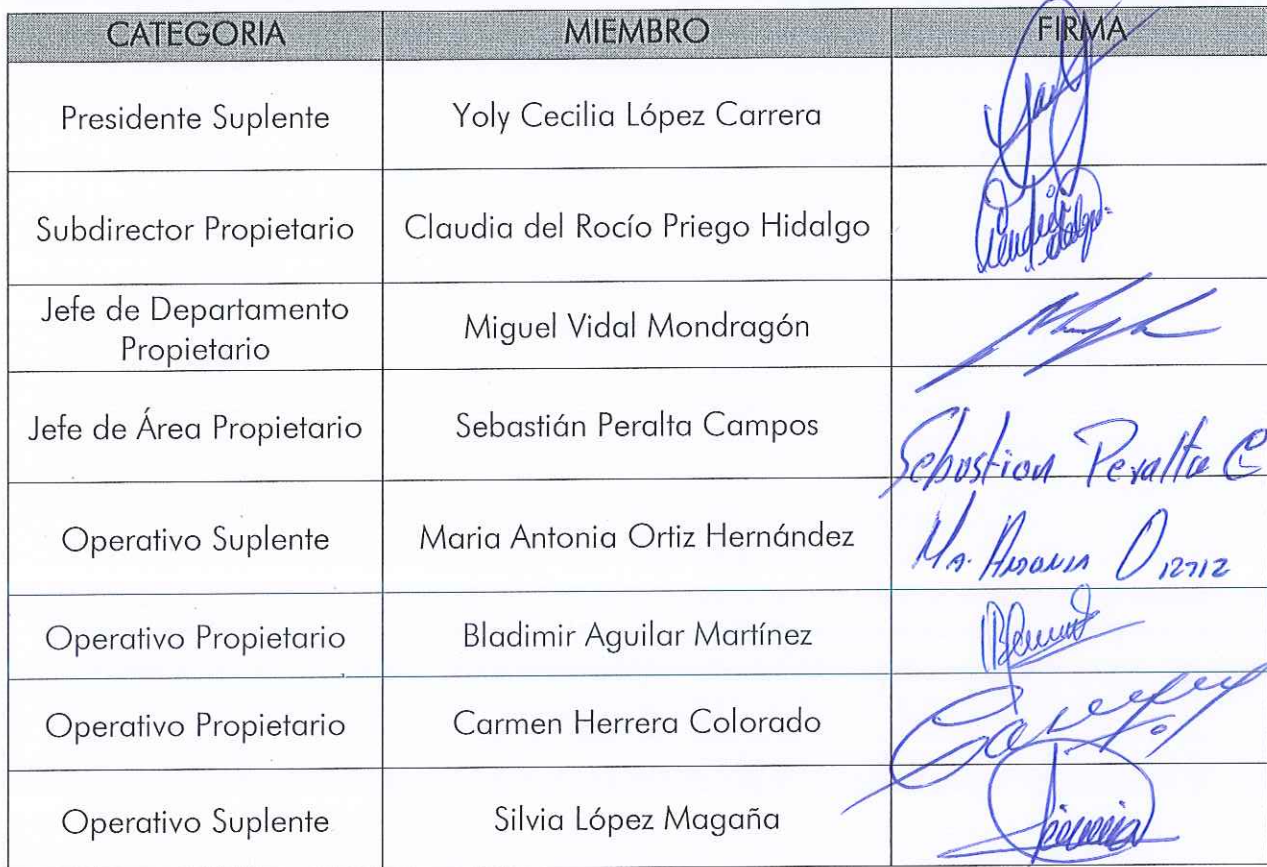 CATEGORIA MIEMBRO FIRMA
Presidente Suplente Yoly Cecilia López Carrera
Subdirector Propietario Claudia del Rocío Priego Hidalgo
Jefe de Departamento
Propietario Miguel Vidal Mondragón
Jefe de Área Propietario Sebastián Peralta Campos Sebastian Peralta C
Operativo Suplente Maria Antonia Ortiz Hernández Ma. Antonia
Operativo Propietario Bladimir Aguilar Martínez
Operativo Propietario Carmen Herrera Colorado
Operativo Suplente Silvia López Magaña